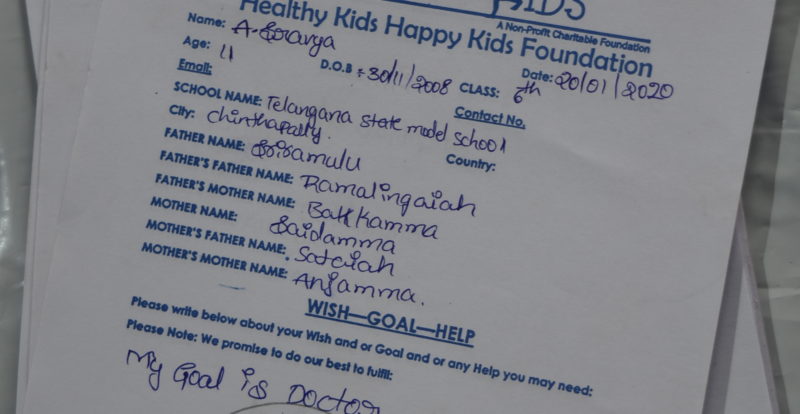 KIDS
A Non-Profit Charitable Foundation
Healthy Kids Happy Kids Foundation
Name: A. Sravya
Date: 20/01/2020
Age: 11 D.O.B : 30/11/2008 CLASS: 6th
Email: Contact No.
SCHOOL NAME: Telangana state model school
City: chinthapally. Country:
FATHER NAME: Sriramulu
FATHER'S FATHER NAME: Ramalingaiah
FATHER'S MOTHER NAME: Bakkamma
MOTHER NAME: Saidamma
MOTHER'S FATHER NAME: Sataiah
MOTHER'S MOTHER NAME: Anjamma.
WISH—GOAL—HELP
Please write below about your Wish and or Goal and or any Help you may need:
Please Note: We promise to do our best to fulfil:
My Goal is Doctor